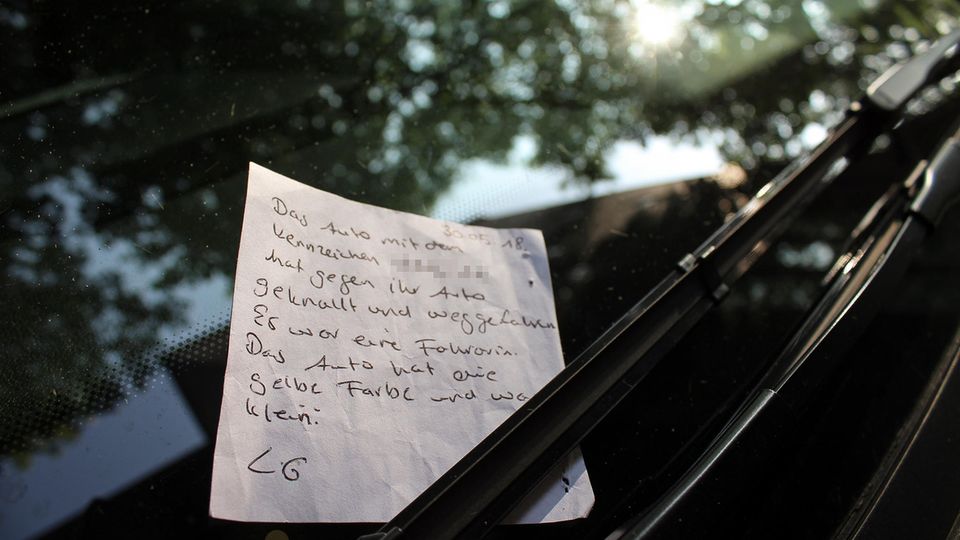 30.05.18.
Das Auto mit dem
Kennzeichen
hat gegen ihr Auto
geknallt und weggefahren
Es war eine Fahrerin.
Das Auto hat eie
gelbe Farbe und wa
klein.
LG